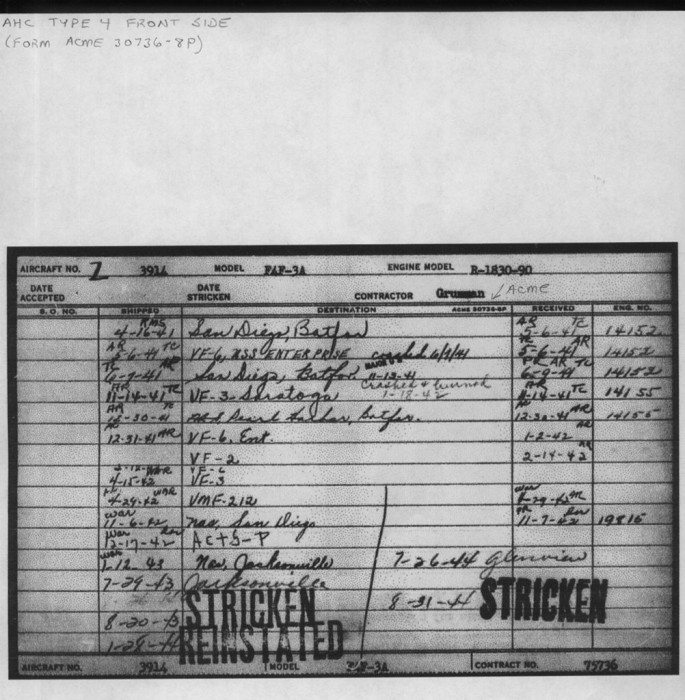 AHC TYPE 4 FRONT SIDE
(FORM ACME 30736-8P)
AIRCRAFT NO. Z 3914 MODEL F4F-3A ENGINE MODEL R-1830-90
DATE ACCEPTED DATE STRICKEN CONTRACTOR Grumman ACME
S. O. NO. SHIPPED DESTINATION ACME 30736-8P RECEIVED ENG. NO.
4-16-41 San Diego, Batfor AR 5-6-41 TC 14152
AR 5-6-41 TC VF-6, USS ENTERPRISE crashed 6/9/41 TC 5-6-41 AR 14152
TC 6-9-41 AR San Diego, Batfor 11-13-41 PR AR TC 6-9-41 14152
AR 11-14-41 TC VF-3 Saratoga Crashed & burned 1-18-42 AR 11-14-41 TC 14155
AR 12-30-41 TC Pearl Harbor, Batfor. 12-30-41 AR 14155
12-31-41 AR VF-6, Ent. 1-2-42 AR
VF-2 2-14-42
VF-6
4-15-42 VF-3
4-29-42 WAR VMF-212 4-29-42
war 11-6-42 Nas, San Diego 11-7-42 19815
war 12-17-42 ACTS-P
war 1-12-43 Nas, Jacksonville 7-26-44 Glenview
7-29-43 Jacksonville
STRICKEN 8-31-44 STRICKEN
8-20-43
1-29-44 REINSTATED
AIRCRAFT NO. 3914 MODEL F4F-3A CONTRACT NO. 75736